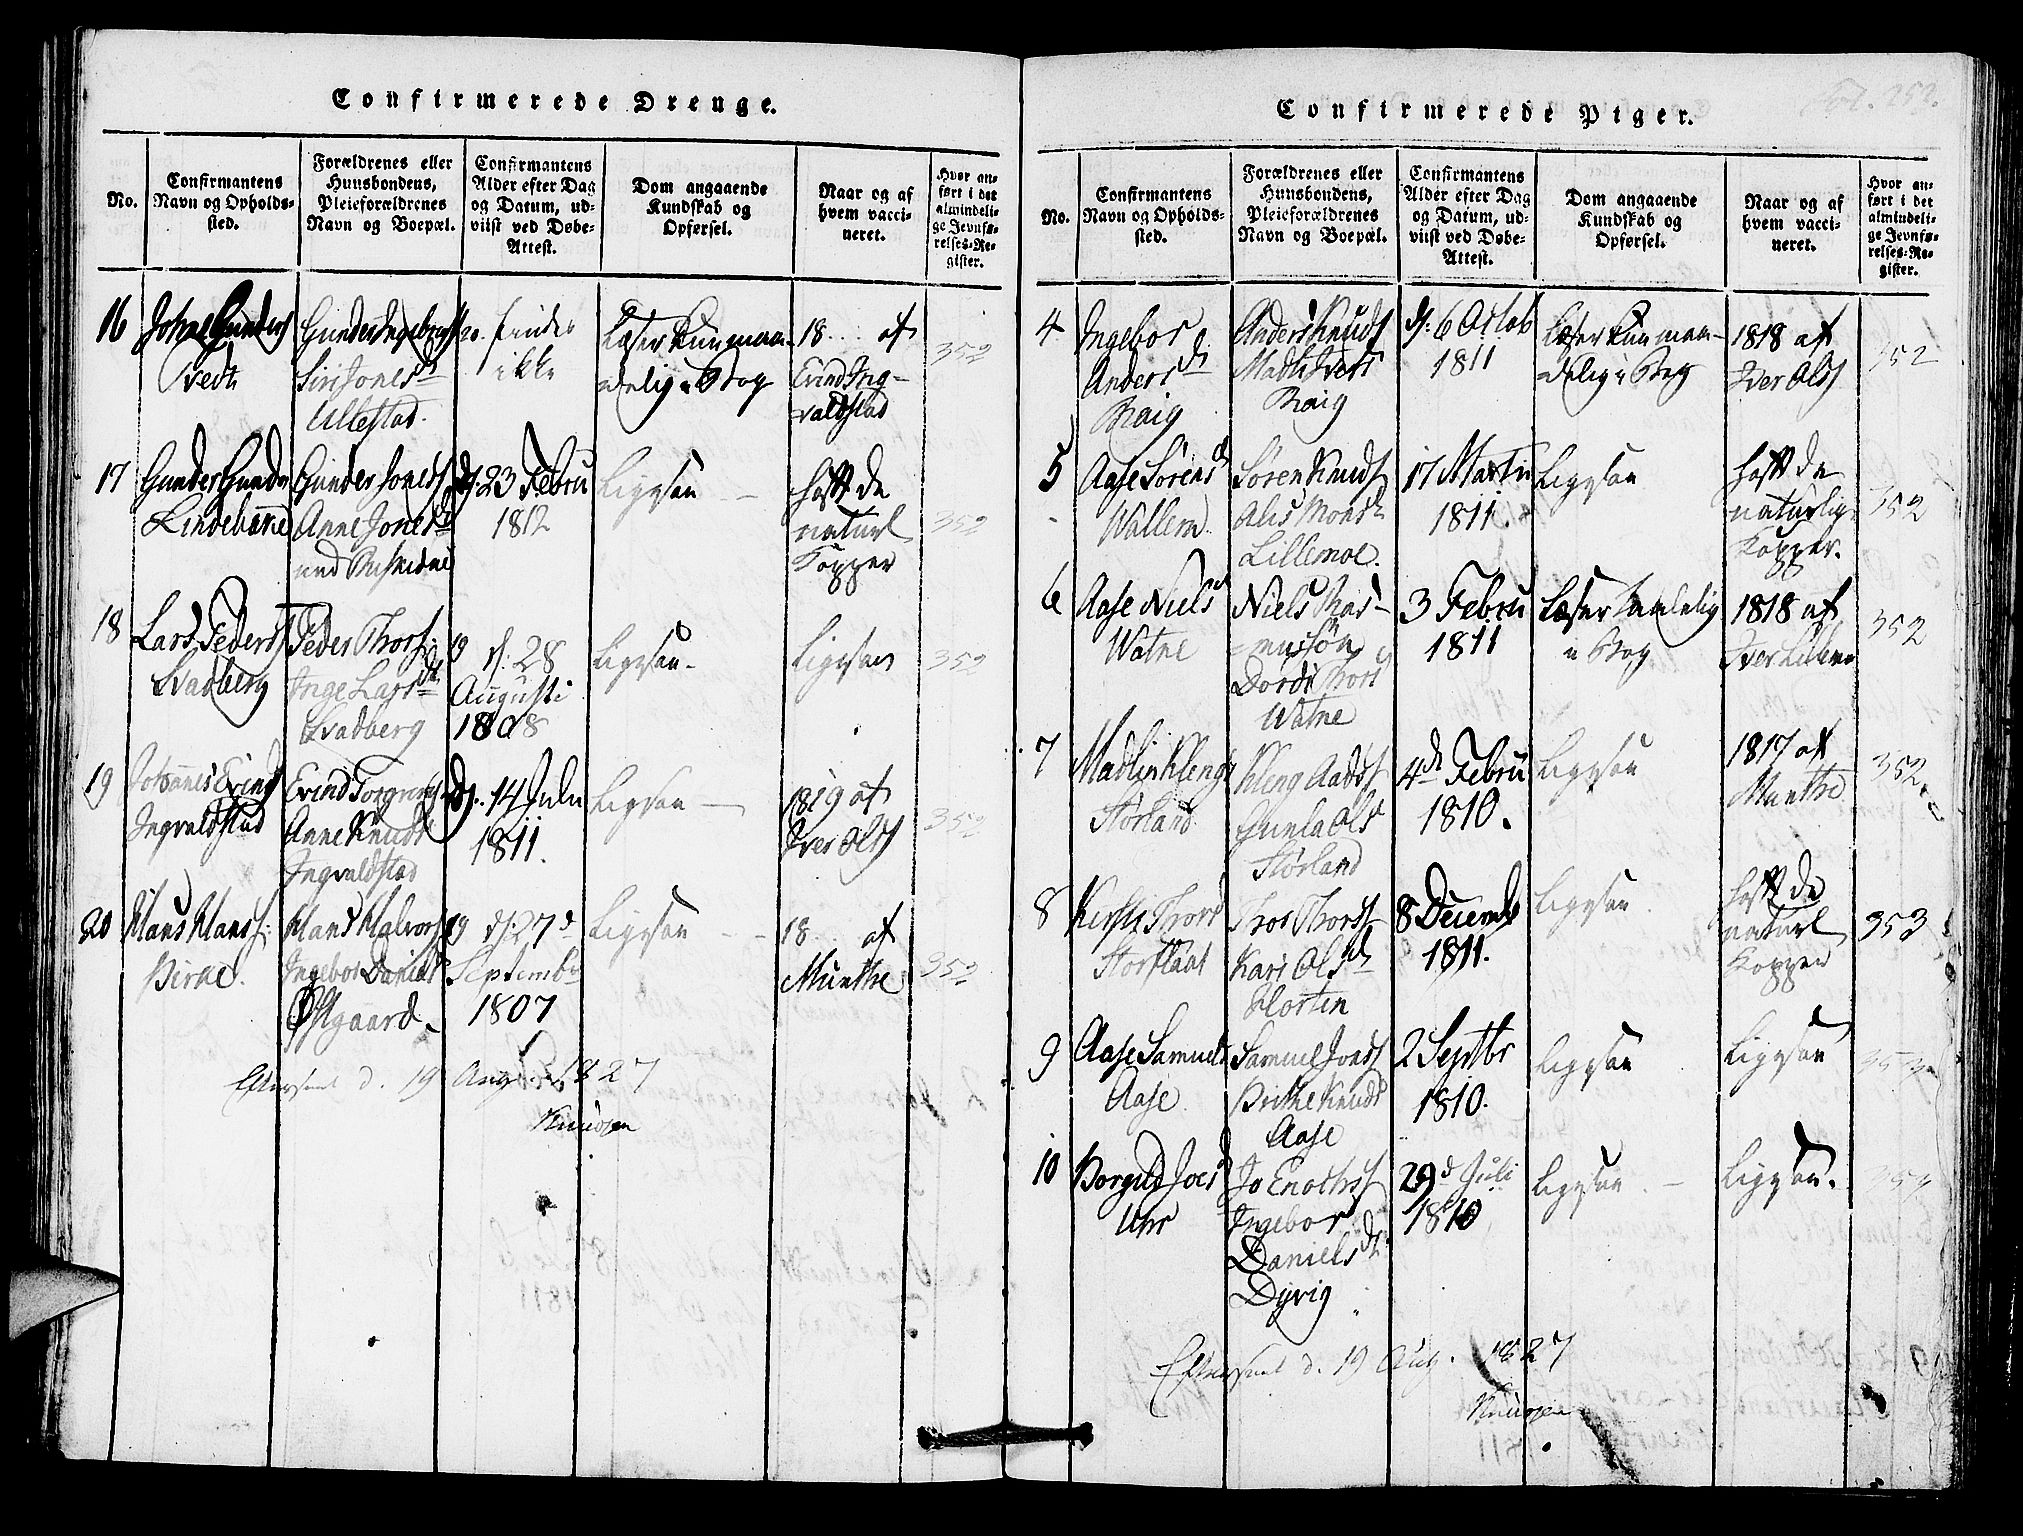 Confirmerede Drenge.
No.
Confirmantens
Navn og Opholds-
sted.
Forældrenes eller
Huusbondens,
Pleieforældrenes
Navn og Boepæl.
Confirmantens
Alder efter Dag
og Datum, ud-
viist ved Døbe-
Attest.
Dom angaaende
Kundskab og
Opførsel.
Naar og af
hvem vacci-
neret.
Hvor an-
ført i det
almindeli-
ge Jevnfø-
relses-Re-
gister.
16
Gunder
Tvedt
Gunder
Siri Jones dt
Ullestad.
findes
ikke
Læser kun maa-
delig i Bog
18... af
Evind Ing-
valdstad
352
17
Gunder Gunder
Gunder Jones
Anne Jones dt
d: 23 Febru
1812
Ligesaa
haft de
naturl
Kopper
352
18
Lars Peders
Svadberg
Peder Thors
Inge Lars dt
Svadberg
19 d: 28
Augusti
1808
Ligesaa
Ligesaa
352
19
Johannes Evinds
Ingvaldstad
Evind
Anne Knuds
Ingvaldstad
d: 14 Julii
1811.
Ligesaa
1819 af
Iver Ols
352
20
Hans Hans
Hans Halvors
Ingebor Daniels
Østgaard
19 d: 27 d
Septemb
1807
Ligesaa
18... af
Munthe
352
Efterseet d. 19 Aug. 1827
Knudsen
Confirmerede Piger.
Fol. 252.
No.
Confirmantens
Navn og Opholds-
sted.
Forældrenes eller
Huusbondens,
Pleieforældrenes
Navn og Boepæl.
Confirmantens
Alder efter Dag
og Datum, ud-
viist ved Døbe-
Attest.
Dom angaaende
Kundskab og
Opførsel.
Naar og af
hvem vacci-
neret.
Hvor an-
ført i det
almindeli-
ge Jevnfø-
relses-Re-
gister.
4
Ingebor
Anders dt
Anders Knuds
d: 6 Octob
1811
Læser kun maa-
delig i Bog
1818 af
Iver Ols
352
5
Aase Sørens d
Wallem
Søren Knuds
Alis Mons dt
Lillemoe.
17 Martii
1811.
Ligesaa
haft de
naturlig
Kopper.
352
6
Aase Niels d
Watne
Niels Ras-
mussøn
Dordi Thors
Watne
3 Febru
1811
Læser maadelig
i Bog
1818 af
Iver
352
7
Madli Klengs
Størland
Kleng Aads
Gunla Ols d
Størland
4de Febru
1810.
Ligesaa
1817 af
Munthe
352
8
Thors
Thor Thors
Kari Ols dt
Horten
8 Decemb
1811.
Ligesaa
haft de
naturl
Kopper
353
9
Aase Samuels
Aase
Samuel Jonas
Birthe Knuds
Aase
2 Septbr
1810.
Ligesaa
Ligesaa
10
Uhr
Jo Enoks
Ingebor
Daniels dt
Dyrig
29d Juli
1810
Ligesaa
Ligesaa.
Efterseet d. 19 Aug. 1827
Knudsen